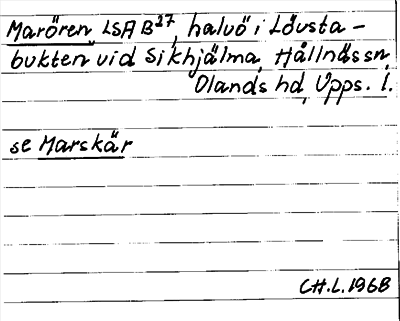 Marören, LSA B²⁷, halvö i Lövsta-
bukten vid Sikhjälma, Hållnäs sn,
Olands hd, Upps. l.
se Marskär
C.H.L. 1968